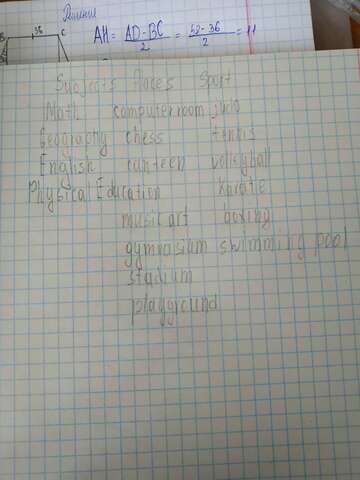 Решение
B 36 C
AH = AD-BC / 2 = 58-36 / 2 = 11
Subjects Places Sport
Math computer room judo
Geography chess tennis
English canteen volleyball
Physical Education karate
music art boxing
gymnasium swimming pool
stadium
playground